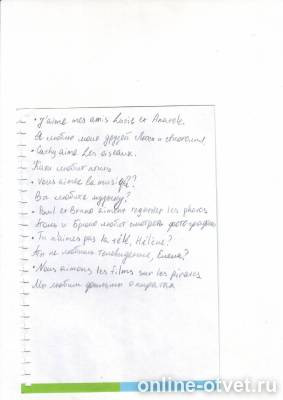 • J'aime mes amis Lucie et Anatole.
Я люблю моих друзей Люси и Анатоля
• Cathy aime les oiseaux.
Кати любит
• Vous aimez la musique?
Вы любите музыку?
• Paul et Bruno aiment regarder les photos
Поль и Бруно любят смотреть фотографии
• Tu n'aimes pas la télé, Hélène?
Ты не любишь телевидение, Елена?
• Nous aimons les films sur les pirates
Мы любим фильмы о пиратах
online-otvet.ru